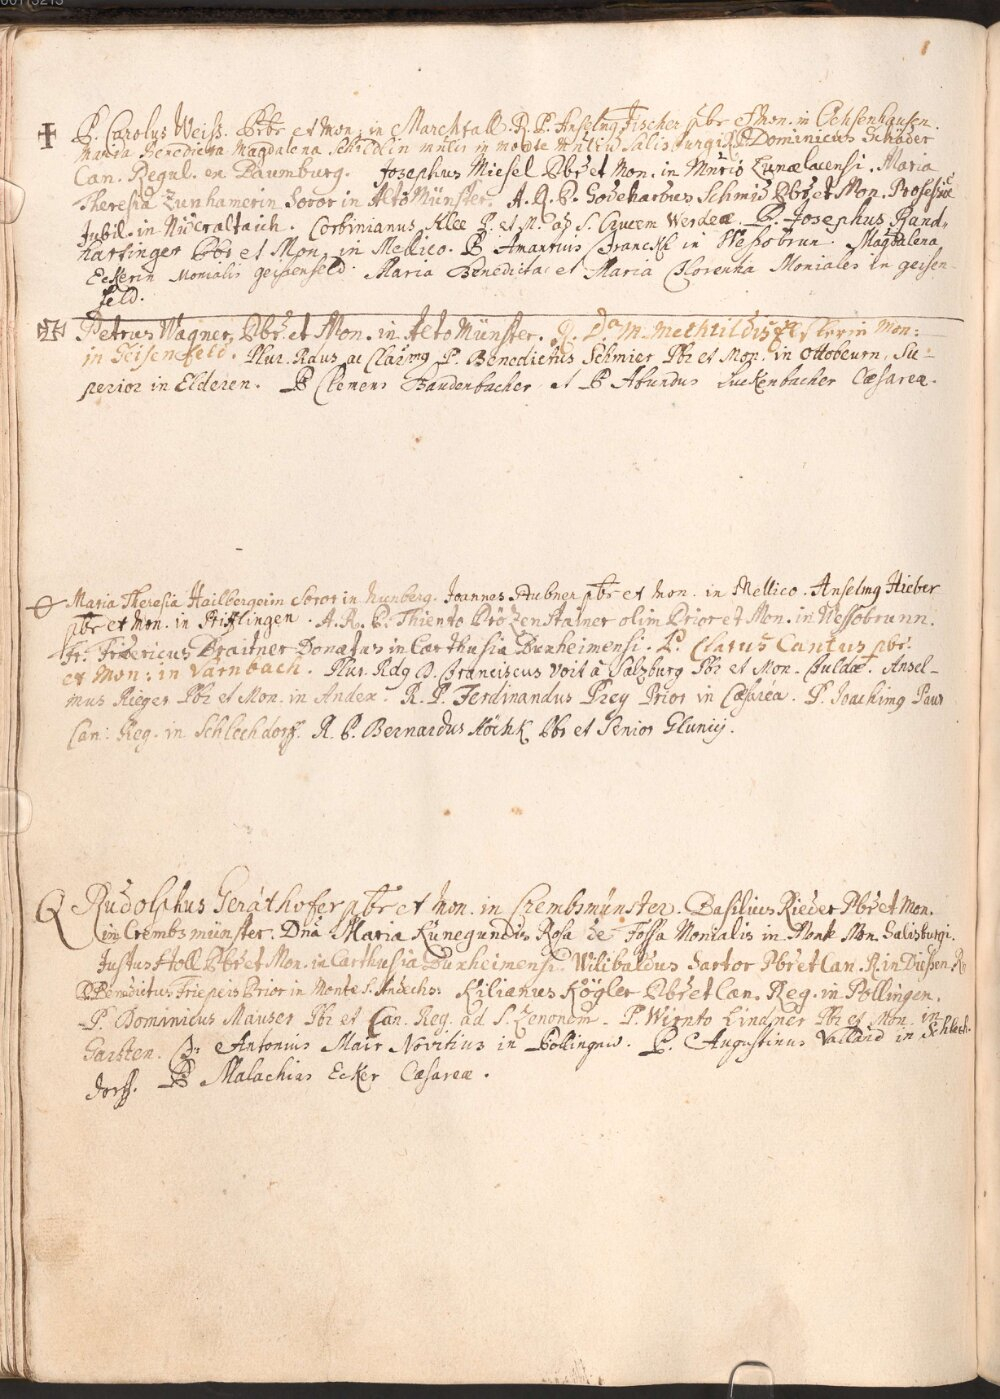 P. Carolus Weiss. Pbr et Mon. in Marchtall. R. P. Anselmg Fischer pbr et Mon. in Ochsenhausen.
Maria Benedicta Magdalena Schildlin in monte Salisburgi. R. P. Dominicus Schäder
Can. Regul. en Baumburg. Josephus Miesel Pbr et Mon. in Muris Lunælacensi. Maria
Theresia Zunhamerin Soror in Alto Münster. A. R. P. Godehardus Schmid Pbr et Mon. Professus
Jubil. in Nideraltaich. Corbinianus Klee P. et M. ad S. Crucem Werdeæ. P. Josephus Hand-
hartinger Pbr et Mon. in Mellico. P. Amantius Franckh in Wessobrun. Magdalena
Eckerin Monialis geisenfeld. Maria Benedicta et Maria Florentia Moniales in geisen-
feld.
Petrus Wagner, Pbr. et Mon. in Alto Münster. Mechtildis Mon:
in Geisenfeld. Plur. Rdus ac Clarmg P. Benedictus Schmier Pbr et Mon. in Ottobeurn, Su-
perior in Elderen. P Clemens Baudenbacher et P Abundus Luckenbacher Cæsarea.
Maria Theresia Hailbergerin Soror in Nunberg. Joannes Dubner pbr et Mon. in Mellico. Anselmg Hieber
pbr et Mon. in Prifflingen. A. R. P. Thiento Prözenstainer olim Prior et Mon. in Wessobrunn.
Fr: Fridericus Braitner Donatus in Carthusia Buxheimensi. P. Clarus Cantus pbr.
et Mon: in Varnbach. Plur. Rdg D. Franciscus Voit à Salzburg Pbr et Mon. Fuldæ. Ansel-
mus Rieger Pbr et Mon. in Andex. R. P. Ferdinandus Prey Prior in Cæsarea. P. Joachimg Paur
Can: Reg. in Schlechdorf. R. P. Bernardus Köchk Pbr et Senior Glunicij.
Rudolphus Geräthofer pbr et Mon. in Crembsmünster. Basilius Rieder Pbr et Mon.
in Crembsmünster. Dna Maria Kunegundis Rosa de Fossa Monialis in Monte Mon. Salisburgi.
Justus Holl Pbr et Mon. in Carthusia Buxheimensi. Wilibaldus Sartor Pbr et Can. R. in Diessen. R
P Benedictus Friepeis Prior in Monte S. Andechs. Kilianus Kögler Pbr et Can. Reg. in Pollingen.
P. Dominicus Mauser Pbr et Can. Reg. ad S. Zenonem. P. Wirnto Lindner Pbr et Mon. in
Garsten. Fr: Antonius Mair Novitius in Pollingen. P. Augustinus Valland in Schlech-
dorff. P Malachias Ecker Cæsareæ.